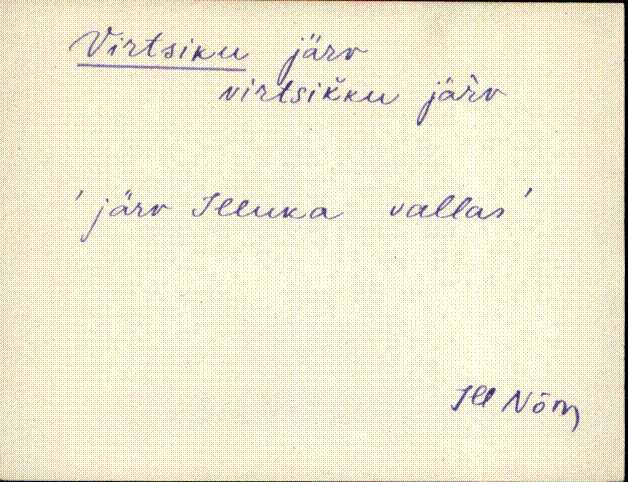 Virtsiku järv
virtsik̆ku jär̀v
' järv Illuka vallas'
Ill Nõm